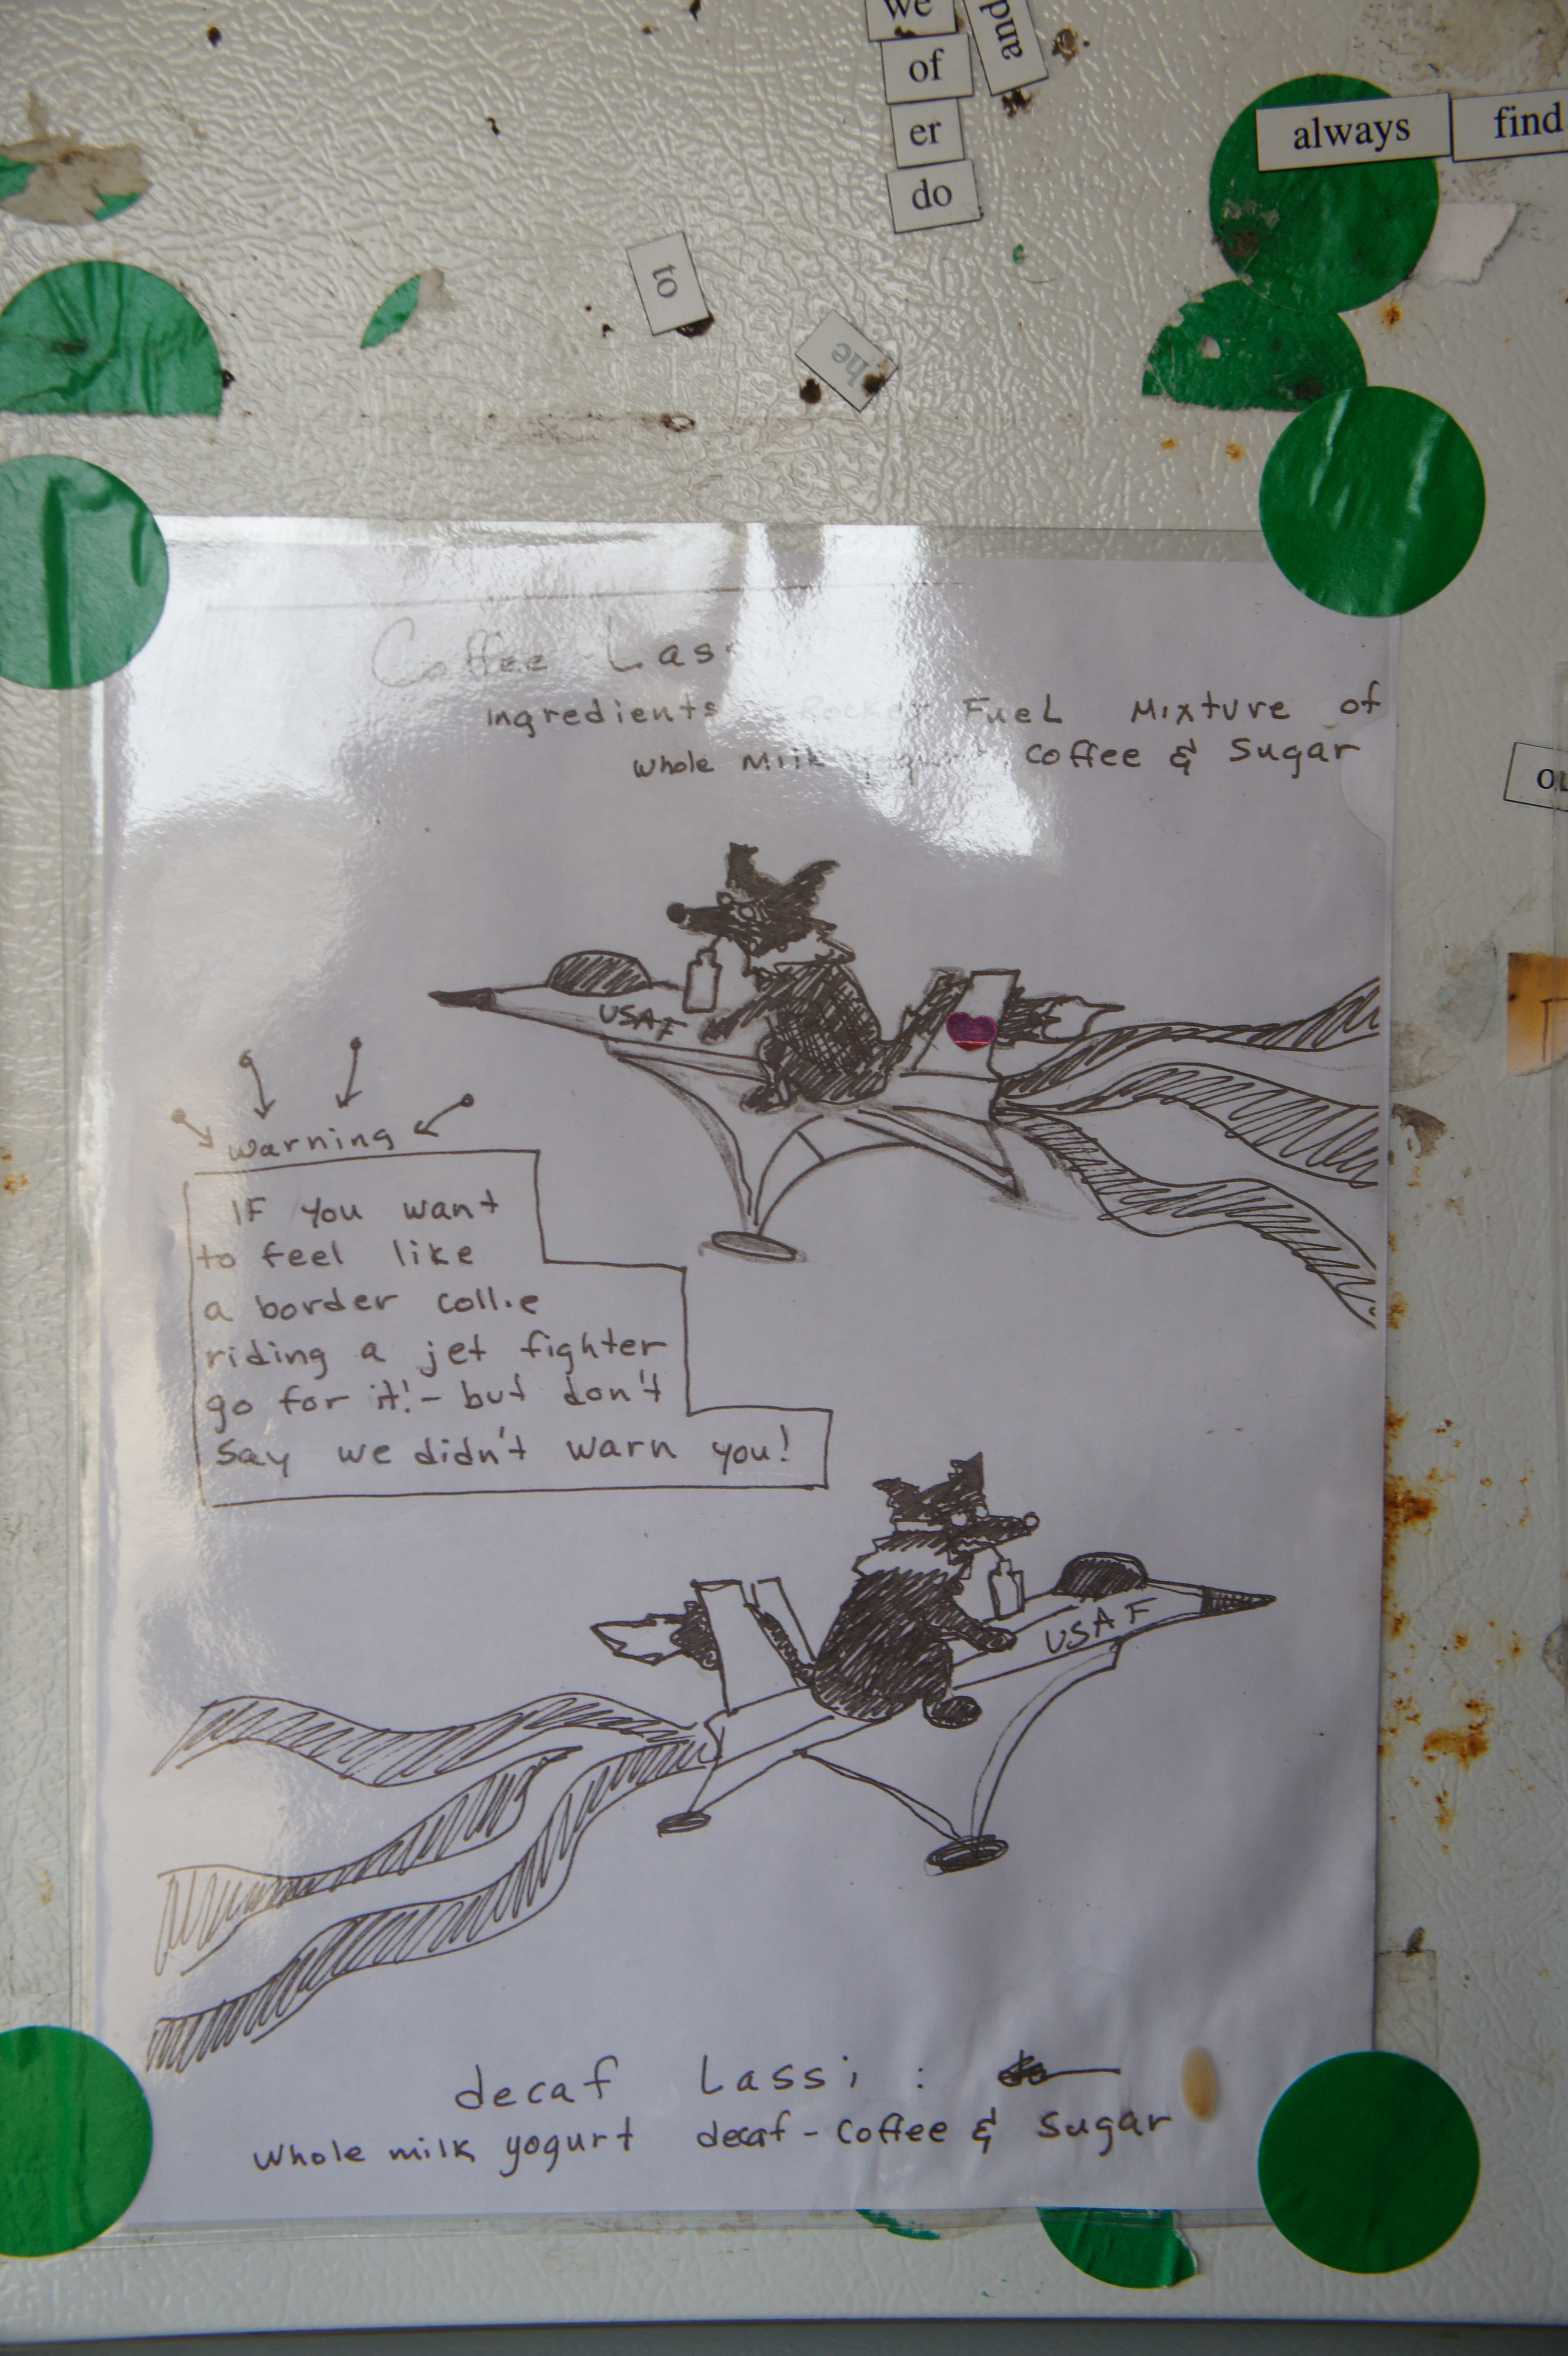 we
and
of
er
do
always find
to
he
Coffee Lass
Ingredients Rocket Fuel Mixture of
whole Milk yogurt Coffee & Sugar
USAF
warning
IF you want
to feel like
a border collie
riding a jet fighter
go for it!- but don't
say we didn't warn you!
USAF
decaf Lassi :
whole milk yogurt decaf-coffee & sugar